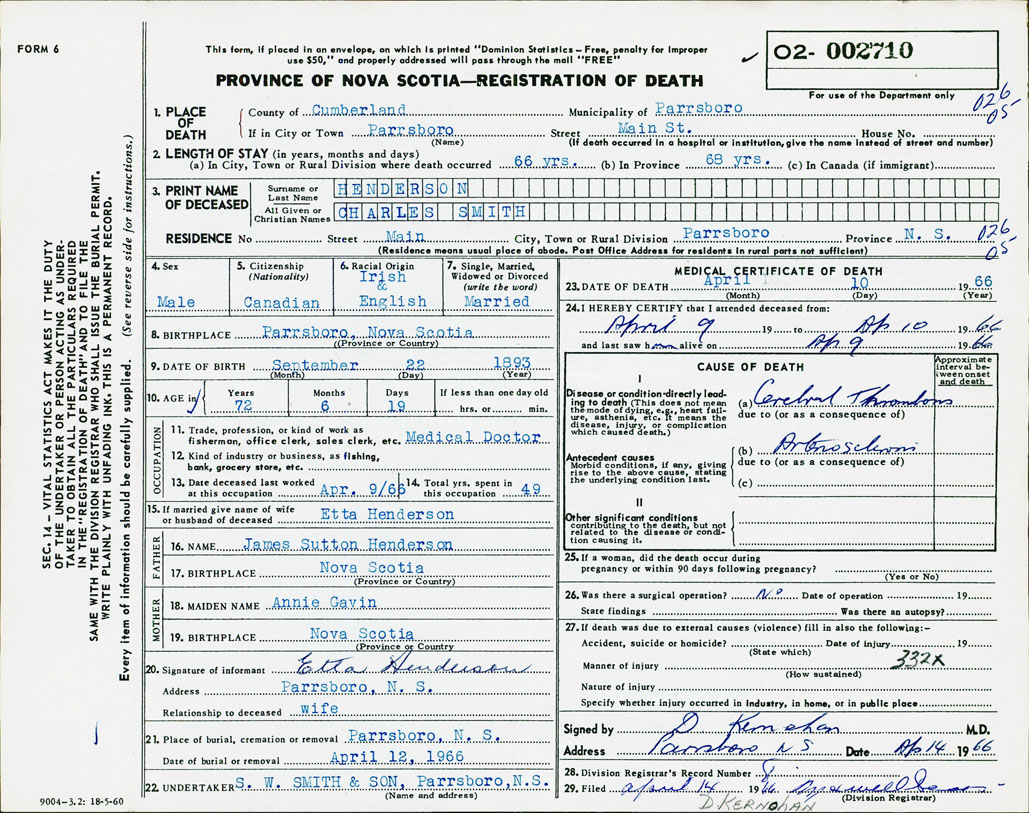 FORM 6
This form, if placed in an envelope, on which is printed "Dominion Statistics – Free, penalty for improper
use $50," and properly addressed will pass through the mail "FREE"
PROVINCE OF NOVA SCOTIA—REGISTRATION OF DEATH
02- 002710
For use of the Department only
026
05
1. PLACE OF DEATH
County of Cumberland Municipality of Parrsboro
If in City or Town Parrsboro Street Main St. House No.
(Name) (If death occurred in a hospital or institution, give the name instead of street and number)
2. LENGTH OF STAY (in years, months and days)
(a) In City, Town or Rural Division where death occurred 66 yrs. (b) In Province 68 yrs. (c) In Canada (if immigrant)
3. PRINT NAME OF DECEASED
Surname or Last Name HENDERSON
All Given or Christian Names CHARLES SMITH
RESIDENCE No Street Main City, Town or Rural Division Parrsboro Province N. S.
026
05
(Residence means usual place of abode. Post Office Address for residents in rural parts not sufficient)
4. Sex
Male
5. Citizenship
(Nationality)
Canadian
6. Racial Origin
Irish
&
English
7. Single, Married,
Widowed or Divorced
(write the word)
Married
8. BIRTHPLACE Parrsboro, Nova Scotia
(Province or Country)
9. DATE OF BIRTH September 22 1893
(Month) (Day) (Year)
10. AGE in
Years Months Days If less than one day old
72 6 19 hrs. or min.
OCCUPATION
11. Trade, profession, or kind of work as
fisherman, office clerk, sales clerk, etc. Medical Doctor
12. Kind of industry or business, as fishing,
bank, grocery store, etc.
13. Date deceased last worked
at this occupation Apr. 9/66
14. Total yrs. spent in
this occupation 49
15. If married give name of wife
or husband of deceased Etta Henderson
FATHER
16. NAME James Sutton Henderson
17. BIRTHPLACE Nova Scotia
(Province or Country)
MOTHER
18. MAIDEN NAME Annie Gavin
19. BIRTHPLACE Nova Scotia
(Province or Country)
20. Signature of informant Etta Henderson
Address Parrsboro, N. S.
Relationship to deceased wife
21. Place of burial, cremation or removal Parrsboro, N. S.
Date of burial or removal April 12, 1966
22. UNDERTAKER S. W. SMITH & SON, Parrsboro, N.S.
(Name and address)
MEDICAL CERTIFICATE OF DEATH
23. DATE OF DEATH April 10 1966
(Month) (Day) (Year)
24. I HEREBY CERTIFY that I attended deceased from:
April 9 19 to Ap 10 1966
and last saw h alive on Ap 9 1966
CAUSE OF DEATH
Approximate
interval be-
tween onset
and death
I
Disease or condition directly lead-
ing to death (This does not mean
the mode of dying, e.g., heart fail-
ure, asthenia, etc. It means the
disease, injury, or complication
which caused death.)
(a) Cerebral Thrombosis
due to (or as a consequence of)
Antecedent causes
Morbid conditions, if any, giving
rise to the above cause, stating
the underlying condition last.
(b) Arteriosclerosis
due to (or as a consequence of)
(c)
II
Other significant conditions
contributing to the death, but not
related to the disease or condi-
tion causing it.
25. If a woman, did the death occur during
pregnancy or within 90 days following pregnancy?
(Yes or No)
26. Was there a surgical operation? No Date of operation 19
State findings Was there an autopsy?
27. If death was due to external causes (violence) fill in also the following:–
Accident, suicide or homicide? Date of injury 19
(State which)
332X
Manner of injury
(How sustained)
Nature of injury
Specify whether injury occurred in industry, in home, or in public place
Signed by D Kernohan M.D.
Address Parrsboro N S Date Ap 14 1966
28. Division Registrar's Record Number 8
29. Filed April 14 1966
(Division Registrar)
D. KERNOHAN
SEC. 14 – VITAL STATISTICS ACT MAKES IT THE DUTY
OF THE UNDERTAKER OR PERSON ACTING AS UNDER-
TAKER TO OBTAIN ALL THE PARTICULARS REQUIRED
IN THE "REGISTRATION OF DEATH" AND TO FILE THE
SAME WITH THE DIVISION REGISTRAR WHO SHALL ISSUE THE BURIAL PERMIT.
WRITE PLAINLY WITH UNFADING INK. THIS IS A PERMANENT RECORD.
Every item of information should be carefully supplied. (See reverse side for instructions.)
9004–3.2: 18-5-60